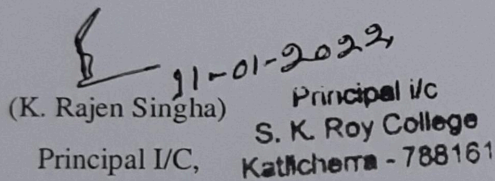 31-01-2022
(K. Rajen Singha)
Principal I/C,
Principal i/c
S. K. Roy College
Katlicherra - 788161